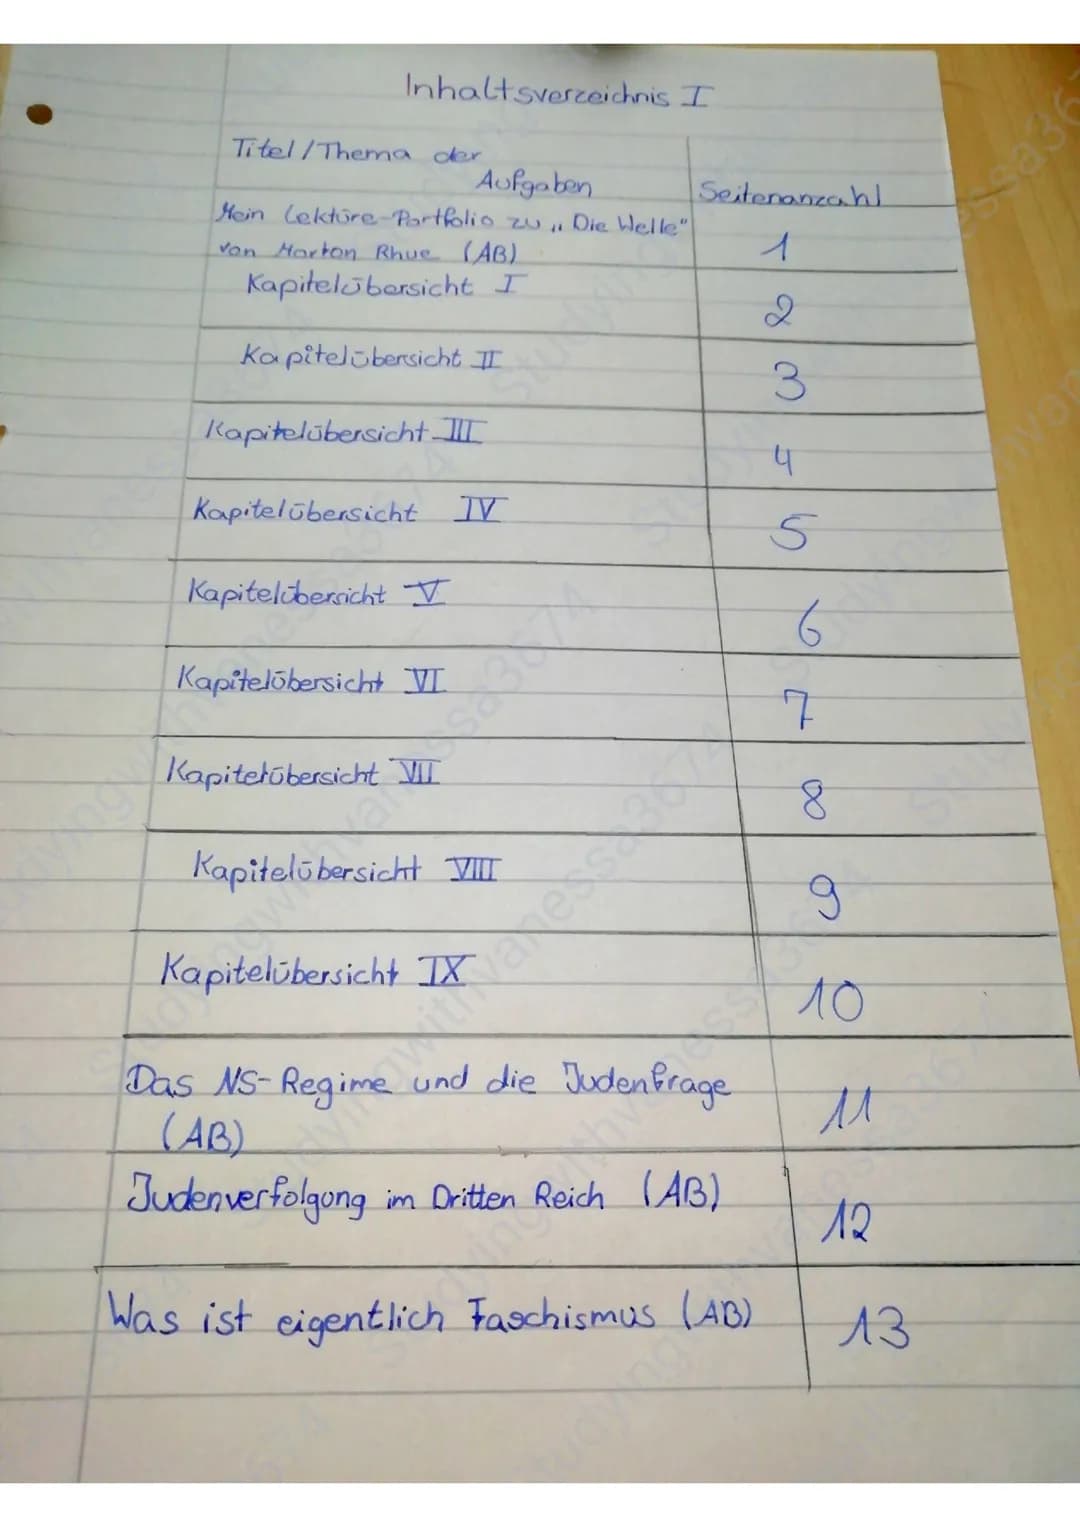 Inhaltsverzeichnis I
Titel/Thema der
Aufgaben
Seitenanzahl
Mein Lektüre-Portfolio zu „Die Welle"
von Morton Rhue (AB)
1
Kapitelübersicht I
2
Kapitelübersicht II
3
Kapitelübersicht III
4
Kapitelübersicht IV
5
Kapitelübersicht V
6
Kapitelübersicht VI
7
Kapitelübersicht VII
8
Kapitelübersicht VIII
9
Kapitelübersicht IX
10
Das NS-Regime und die Judenfrage
(AB)
11
Judenverfolgung im Dritten Reich (AB)
12
Was ist eigentlich Faschismus (AB)
13
studyingwithvanessa3674